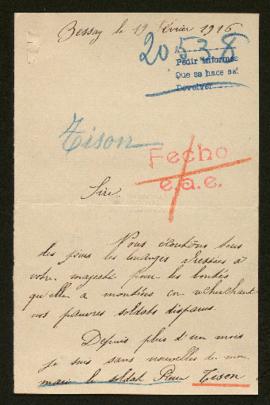 Bessay le 19 Février 1916
20538
A
Pedir informes
Que se hace así
Devolver
Tison
Fecho
e.a.e.
Sire,
Nous écoutons tous
les jours les louanges adressées à
votre majesté pour les bontés
qu'elle a montrées en recherchant
nos pauvres soldats disparus.
Depuis plus d'un mois
je suis sans nouvelles de mon
mari le soldat Pierre Tison